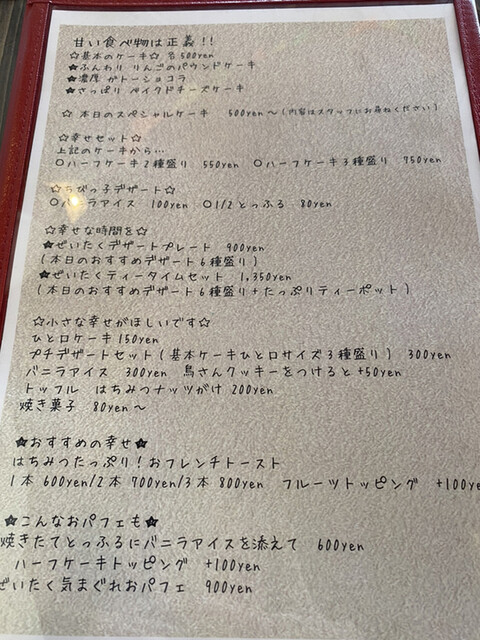 甘い食べ物は正義!!
☆基本のケーキ☆ 各500yen
★ふんわり りんごのパウンドケーキ
★濃厚 ガトーショコラ
★さっぱり ベイクドチーズケーキ
☆ 本日のスペシャルケーキ 500yen～(内容はスタッフにお尋ねください)
☆幸せセット☆
上記のケーキから…
○ハーフケーキ2種盛り 550yen ○ハーフケーキ3種盛り 750yen
☆ちびっ子デザート☆
○バニラアイス 100yen ○1/2とっふる 80yen
☆幸せな時間を☆
★ぜいたくデザートプレート 900yen
(本日のおすすめデザート6種盛り)
★ぜいたくティータイムセット 1,350yen
(本日のおすすめデザート6種盛り+たっぷりティーポット)
☆小さな幸せがほしいです☆
ひと口ケーキ150yen
プチデザートセット(基本ケーキひと口サイズ3種盛り) 300yen
バニラアイス 300yen 鳥さんクッキーをつけると+50yen
トッフル はちみつナッツがけ 200yen
焼き菓子 80yen～
★おすすめの幸せ★
はちみつたっぷり!おフレンチトースト
1本 600yen/2本 700yen/3本 800yen フルーツトッピング +100ye
★こんなおパフェも★
焼きたてとっふるにバニラアイスを添えて 600yen
ハーフケーキトッピング +100yen
ぜいたく気まぐれおパフェ 900yen